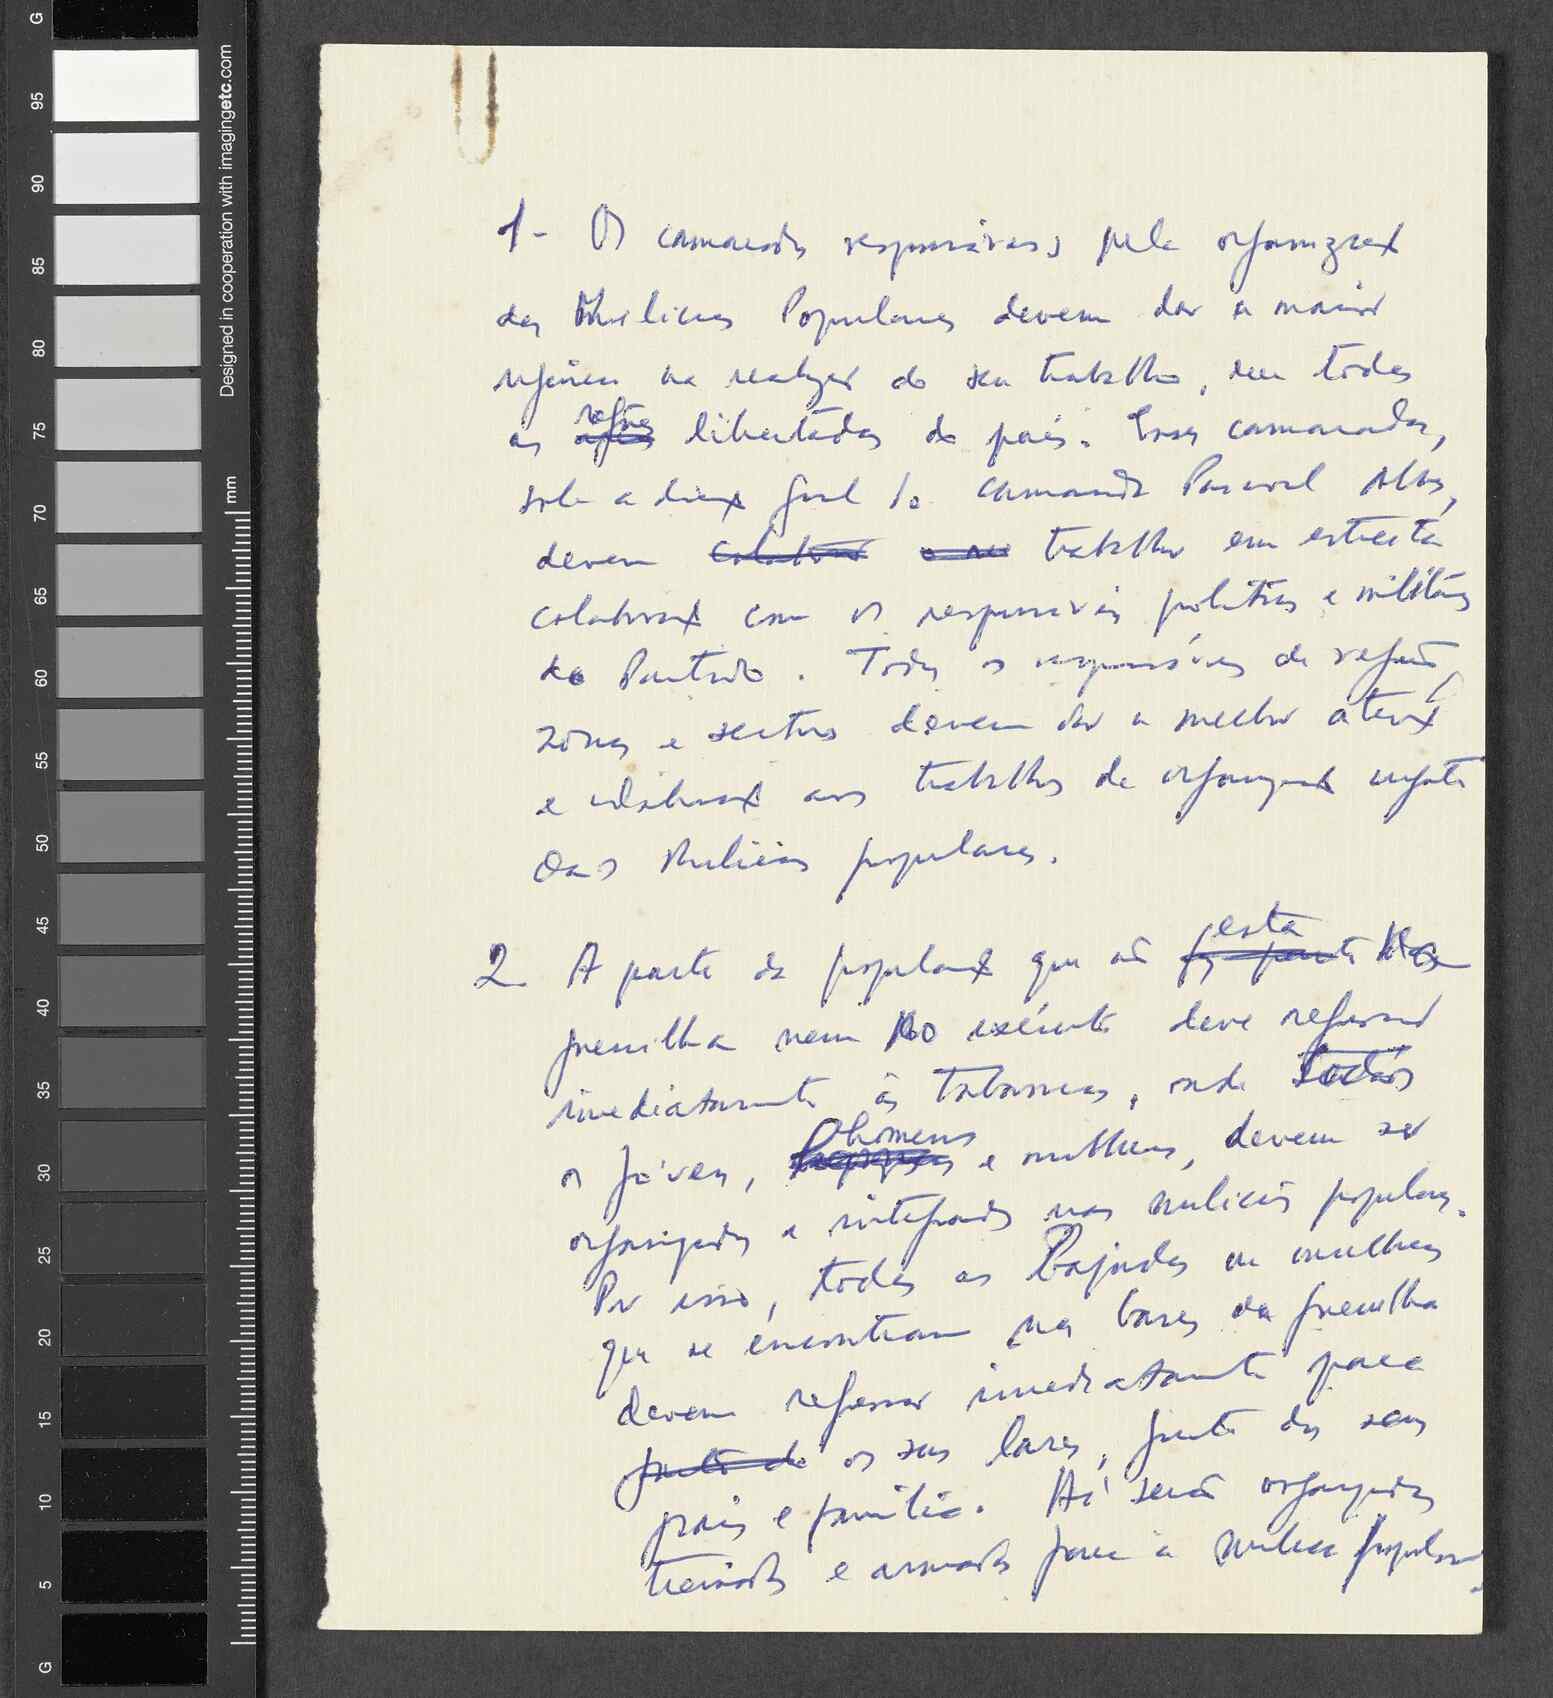 1- Os camaradas responsáveis pela organizaç
das Milicias Populares devem dar a maior
urgência na realizaç do seu trabalho, em todas
as regiões libertadas do país. Esses camaradas,
sob a direcç geral do camarada Pascoal Alves,
devem colaborar trabalhar em estreita
colaboraç com os responsáveis politicos e militares
do Partido. Todos os responsáveis de região,
zonas e sectores devem dar a melhor atenç
e colaboraç aos trabalhos de organizaç urgente
das Milicias populares.
2 A parte da populaç que não está faz parte na
guerrilha nem no exército deve regressar
imediatamente às tabancas, onde todos
os jóvens, homens e mulheres, devem ser
organizados e integrados nas milicias populares.
Por isso, todas as Bajudas ou mulheres
que se encontram nas bases da guerrilha
devem regressar imediatamente para
junto de os seus lares, junto dos seus
pais e familia. Aí serão organizadas
treinadas e armadas para a milicia popular.
G
95
90
85
80
75
70
65
60
55
50
45
40
35
30
25
20
15
10
5
G
Designed in cooperation with imagingetc.com
mm